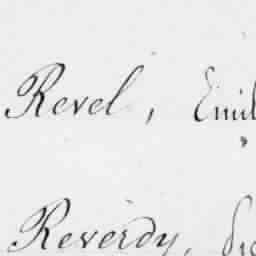 Revel, Emil
"
Reverdy,